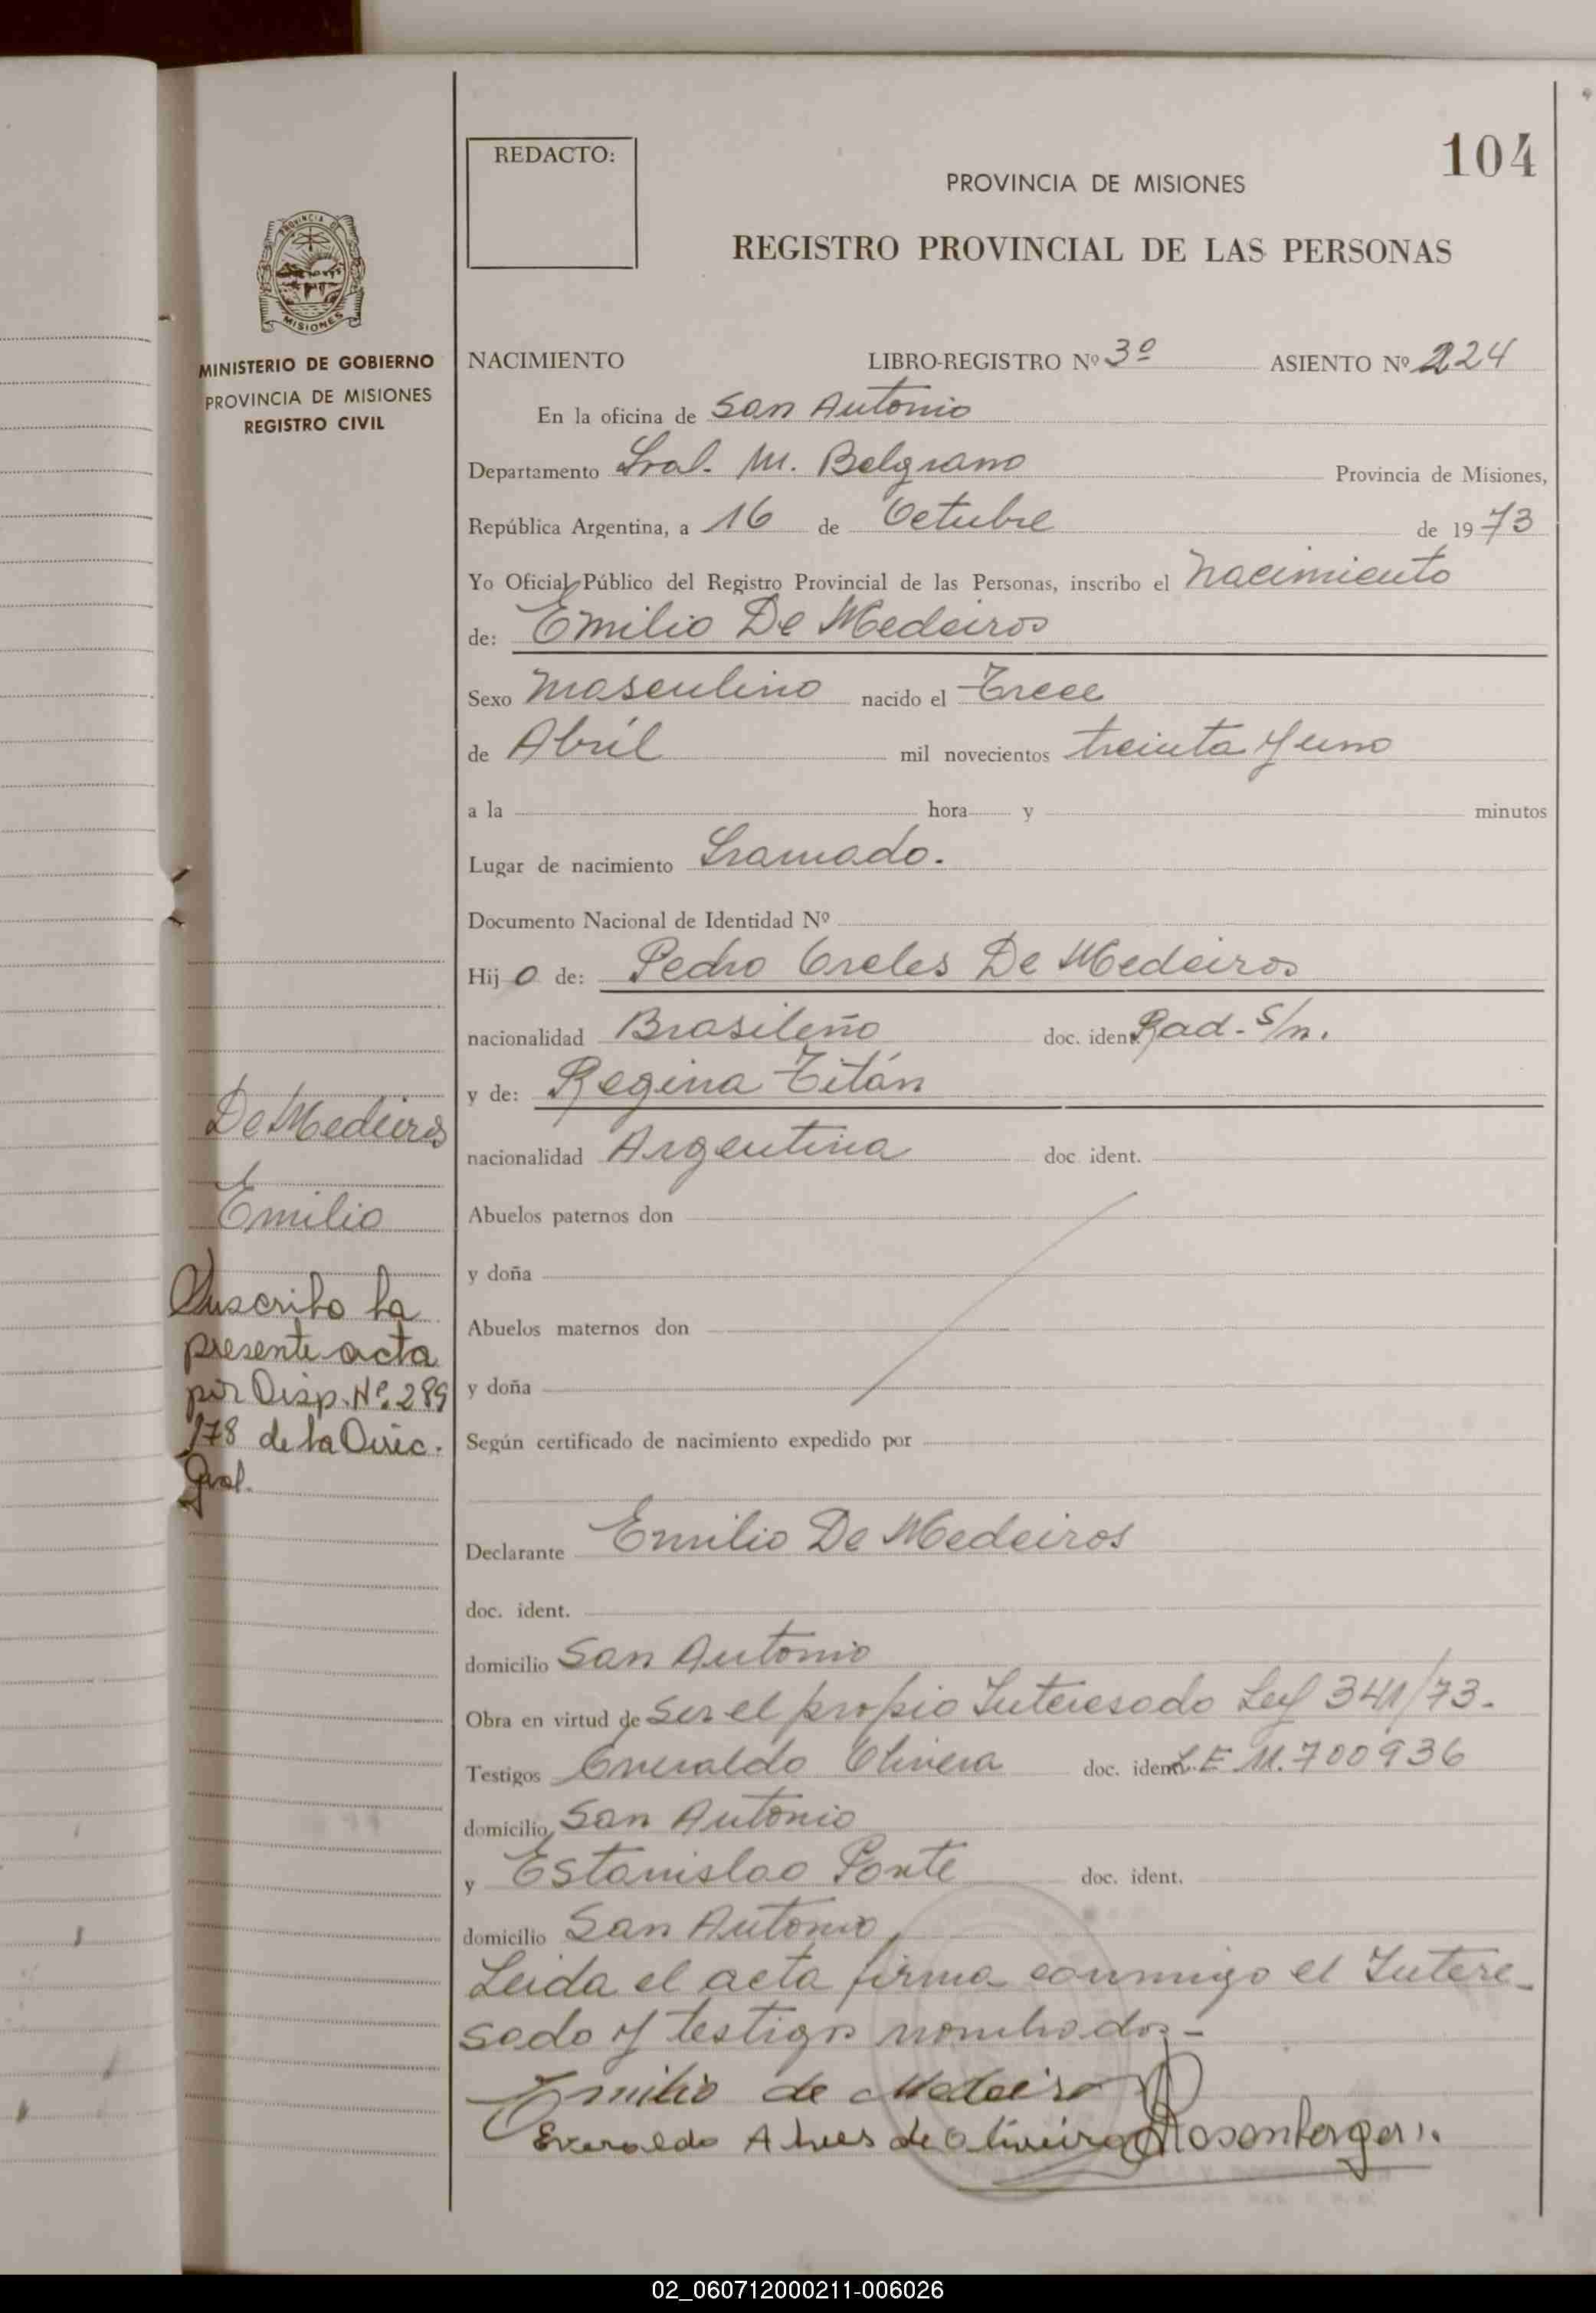 104
REDACTO:
PROVINCIA DE MISIONES
REGISTRO PROVINCIAL DE LAS PERSONAS
PROVINCIA DE
MISIONES
MINISTERIO DE GOBIERNO
PROVINCIA DE MISIONES
REGISTRO CIVIL
NACIMIENTO LIBRO-REGISTRO Nº 3º ASIENTO Nº 224
En la oficina de San Antonio
Departamento Gral. M. Belgrano Provincia de Misiones,
República Argentina, a 16 de Octubre de 1973
Yo Oficial Público del Registro Provincial de las Personas, inscribo el nacimiento
de: Emilio De Medeiros
Sexo masculino nacido el Trece
de Abril mil novecientos treinta y uno
a la hora y minutos
Lugar de nacimiento Gramado.
Documento Nacional de Identidad Nº
Hij o de: Pedro Oreles De Medeiros
nacionalidad Brasileño doc. ident. Rad. S/n.
y de: Regina Titán
nacionalidad Argentina doc. ident.
Abuelos paternos don
y doña
Abuelos maternos don
y doña
Según certificado de nacimiento expedido por
Declarante Emilio De Medeiros
doc. ident.
domicilio San Antonio
Obra en virtud de Ser el propio Interesado Ley 341/73.
Testigos Everaldo Olivera doc. ident. L.E 11.700936
domicilio San Antonio
y Estanislao Ponte doc. ident.
domicilio San Antonio
Leida el acta firma conmigo el Intere-
sado y testigos nombrados-
Emilio de Medeiro
Everaldo Alves de Oliveira Rosenberger
De Medeiros
Emilio
Suscribo la
presente acta
por Disp. Nº. 289
/78 de la Direc.
Gral.
02_060712000211-006026